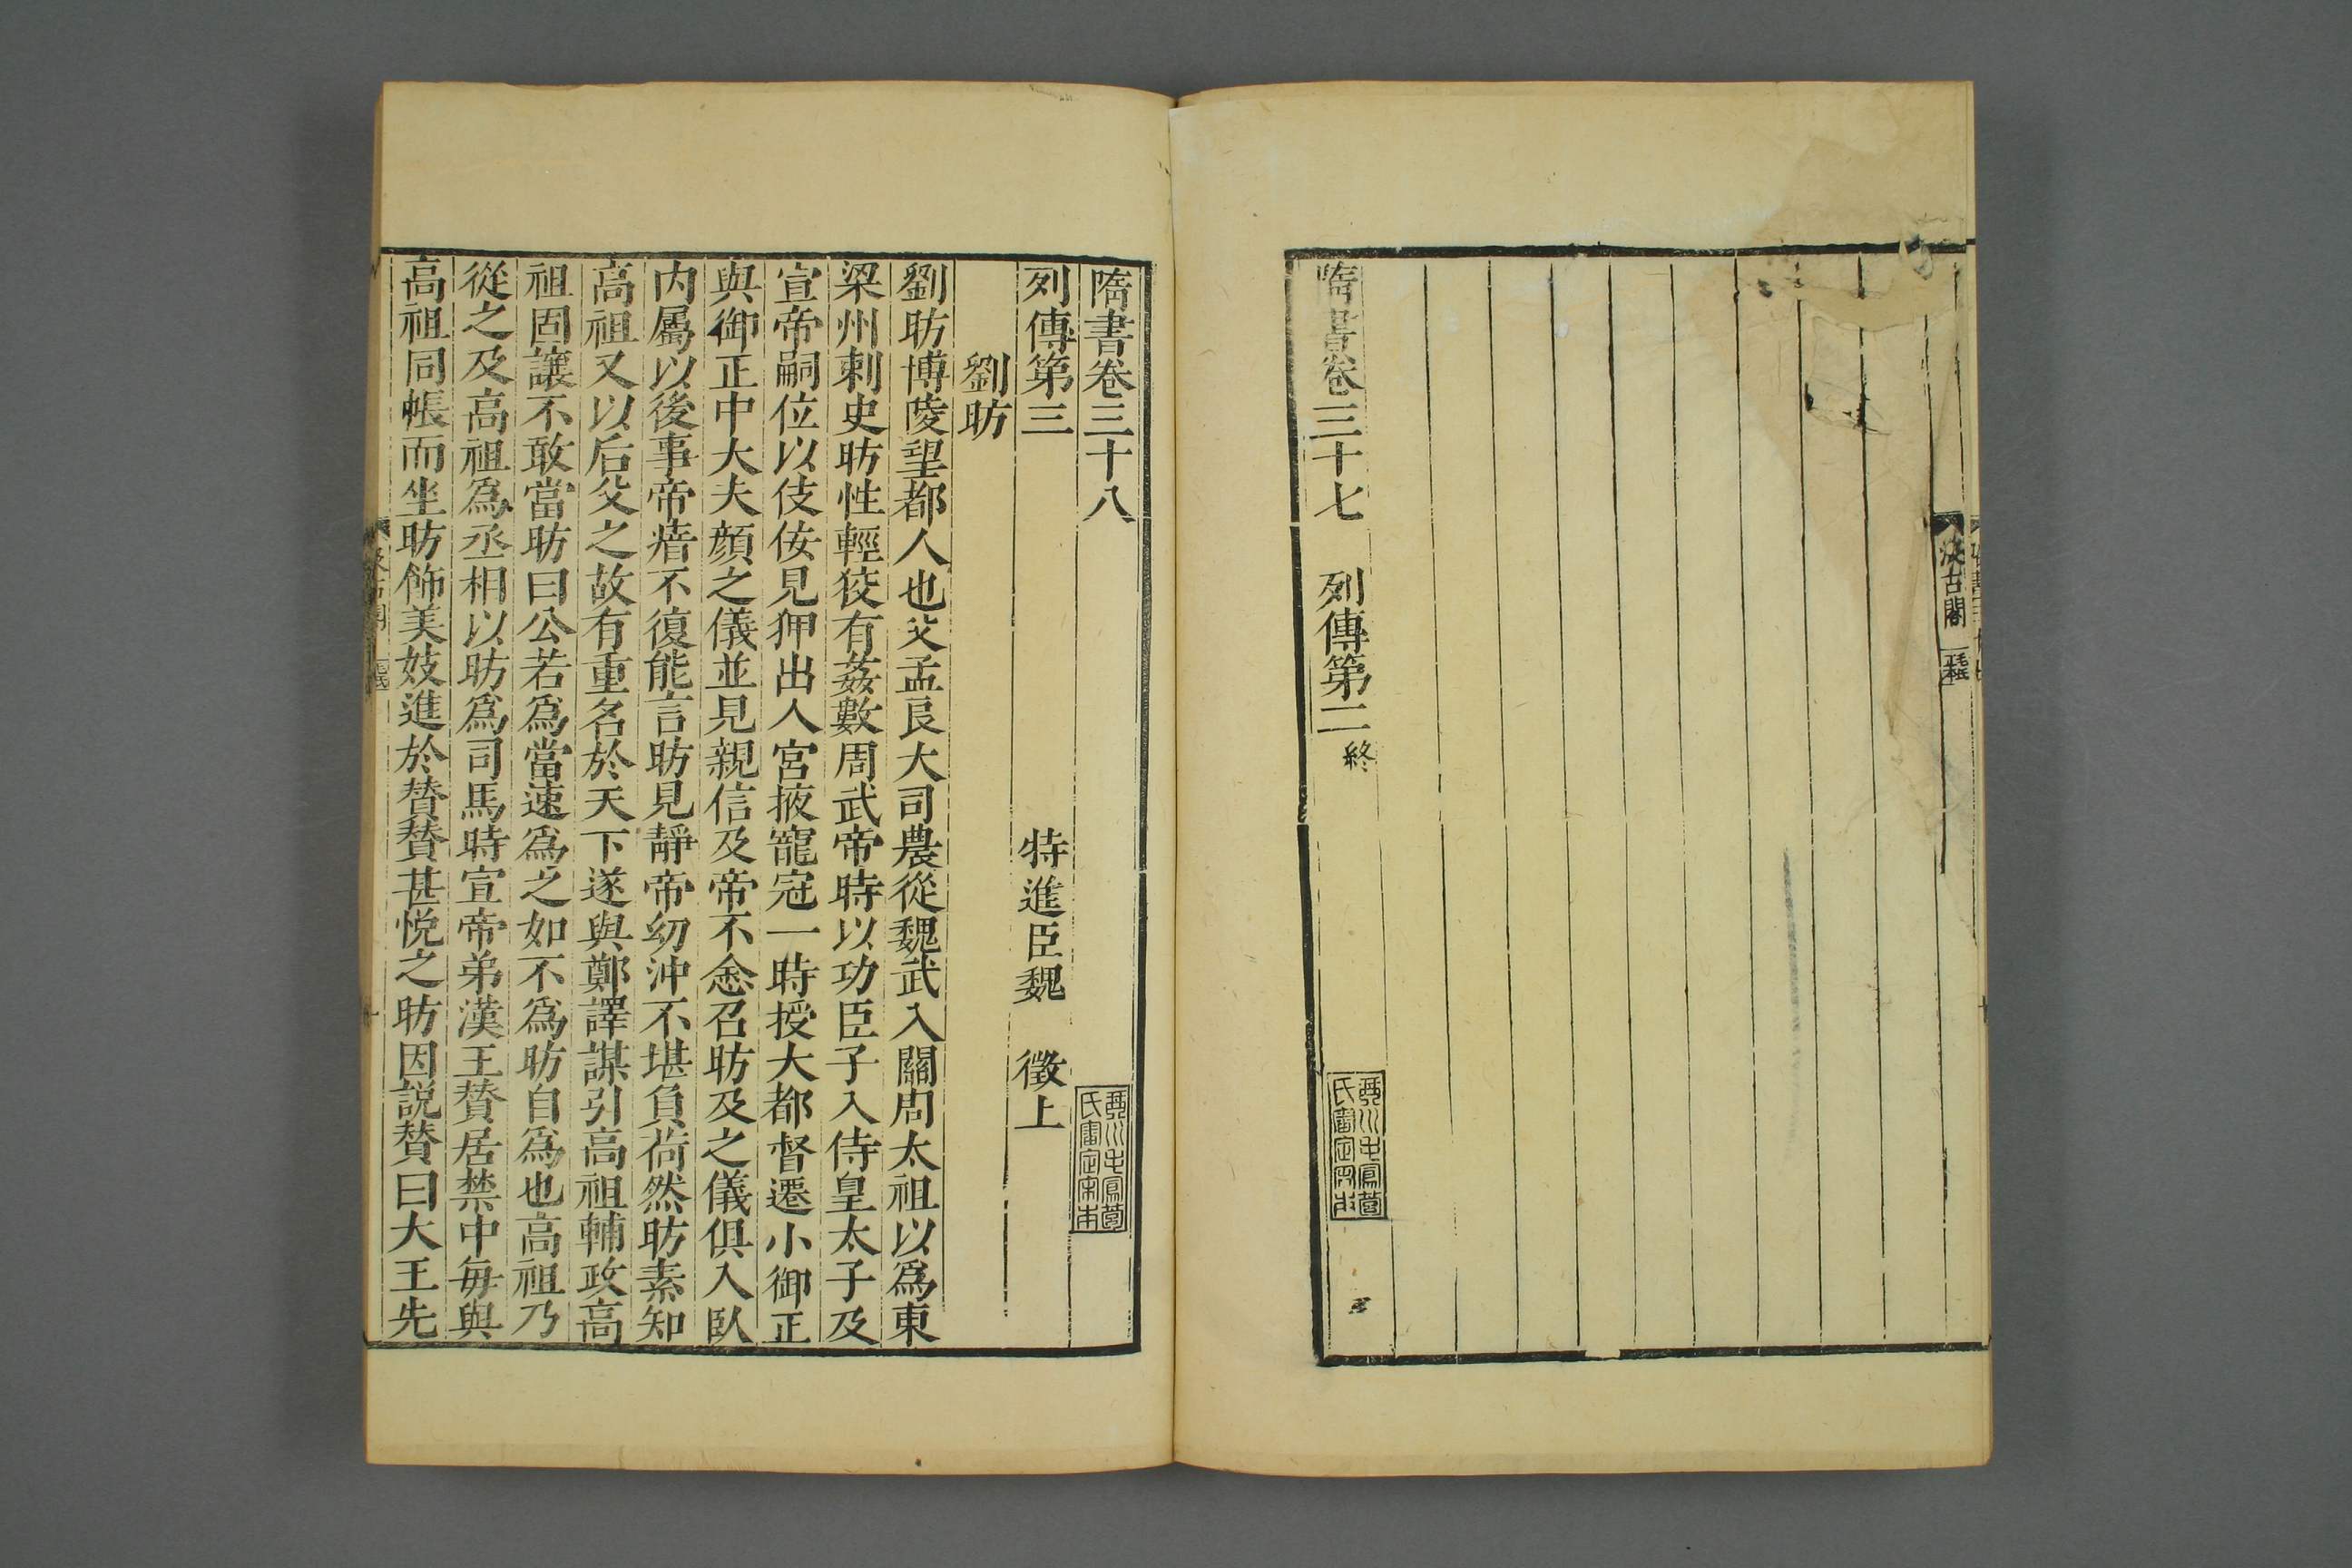 汲古閣
毛氏正本
隋書卷三十七 列傳第二終
琴川毛鳳苞氏審定宋本
隋書卷三十八
琴川毛鳳苞氏審定宋本
列傳第三 特進臣魏 徵上
劉昉
劉昉博陵望都人也父孟良大司農從魏武入關周太祖以爲東
梁州刺史昉性輕狡有姦數周武帝時以功臣子入侍皇太子及
宣帝嗣位以伎佞見狎出入宮掖寵冠一時授大都督遷小御正
與御正中大夫顏之儀並見親信及帝不悆召昉及之儀俱入臥
内屬以後事帝瘖不復能言昉見靜帝幼沖不堪負荷然昉素知
高祖又以后父之故有重名於天下遂與鄭譯謀引高祖輔政高
祖固讓不敢當昉曰公若爲當速爲之如不爲昉自爲也高祖乃
從之及高祖爲丞相以昉爲司馬時宣帝弟漢王賛居禁中每與
高祖同帳而坐昉飾美妓進於賛賛甚悅之昉因説賛曰大王先